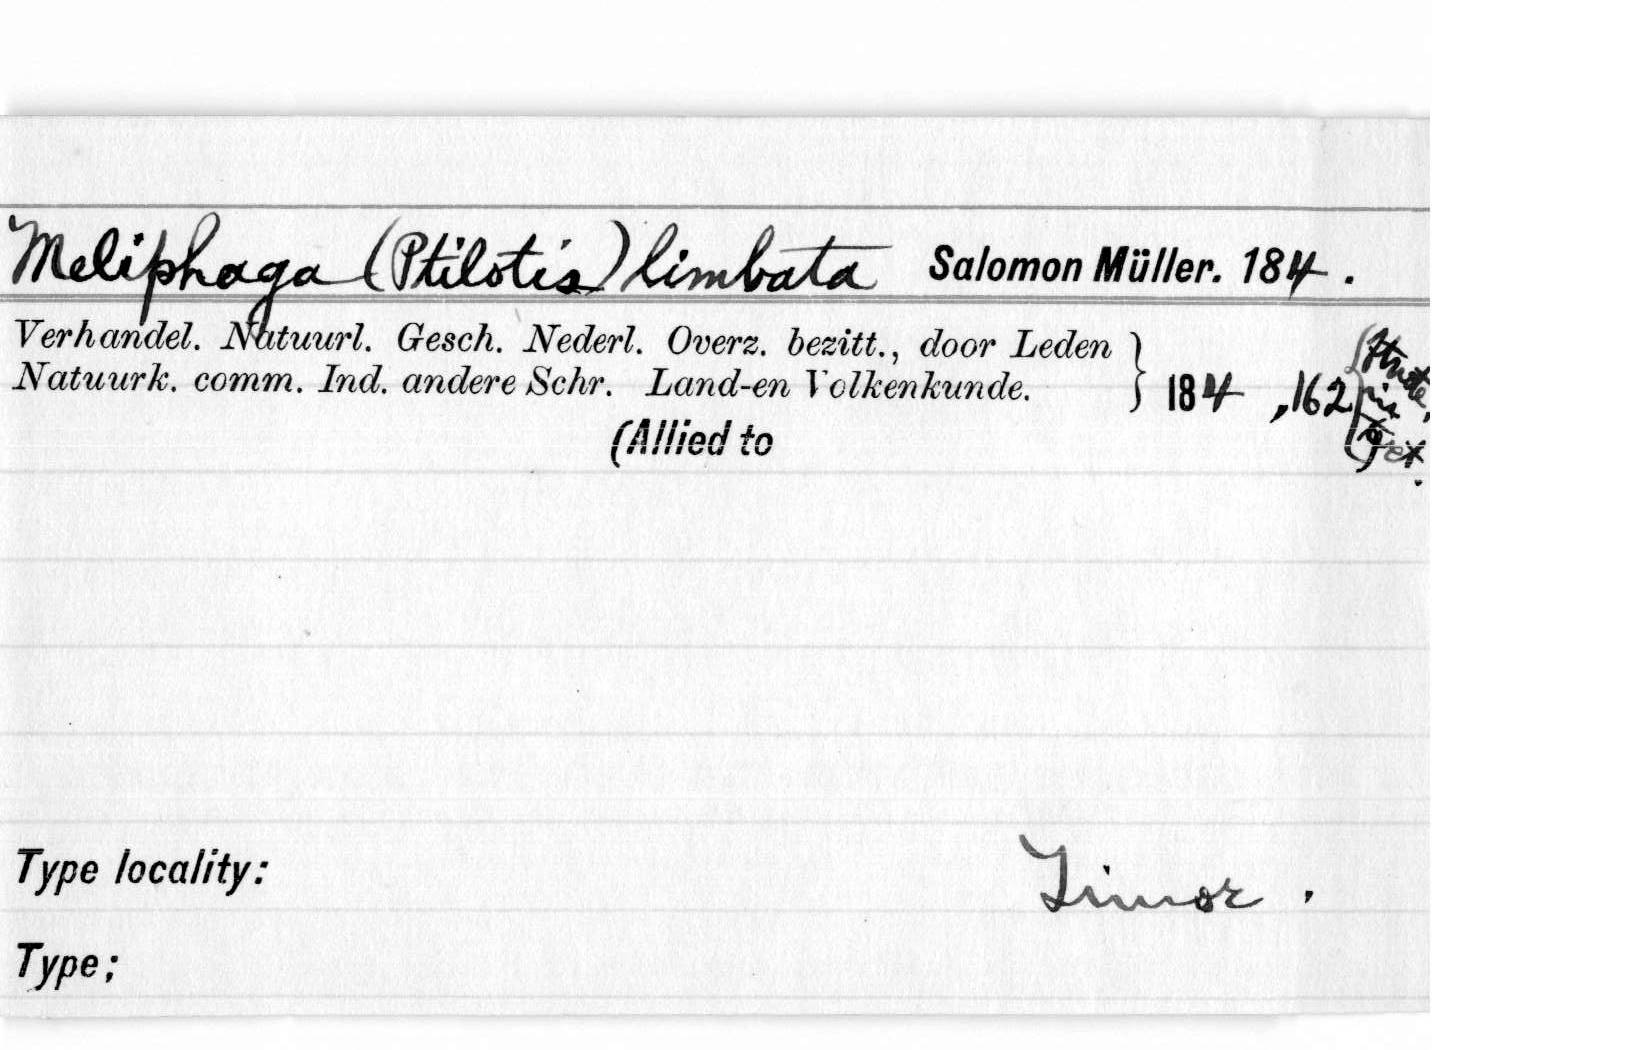 Meliphaga (Ptilotis) limbata Salomon Müller. 184 .
Verhandel. Natuurl. Gesch. Nederl. Overz. bezitt., door Leden
Natuurk. comm. Ind. andere Schr. Land-en Volkenkunde. } 184 , 162
(Allied to
Type locality: Timor .
Type;